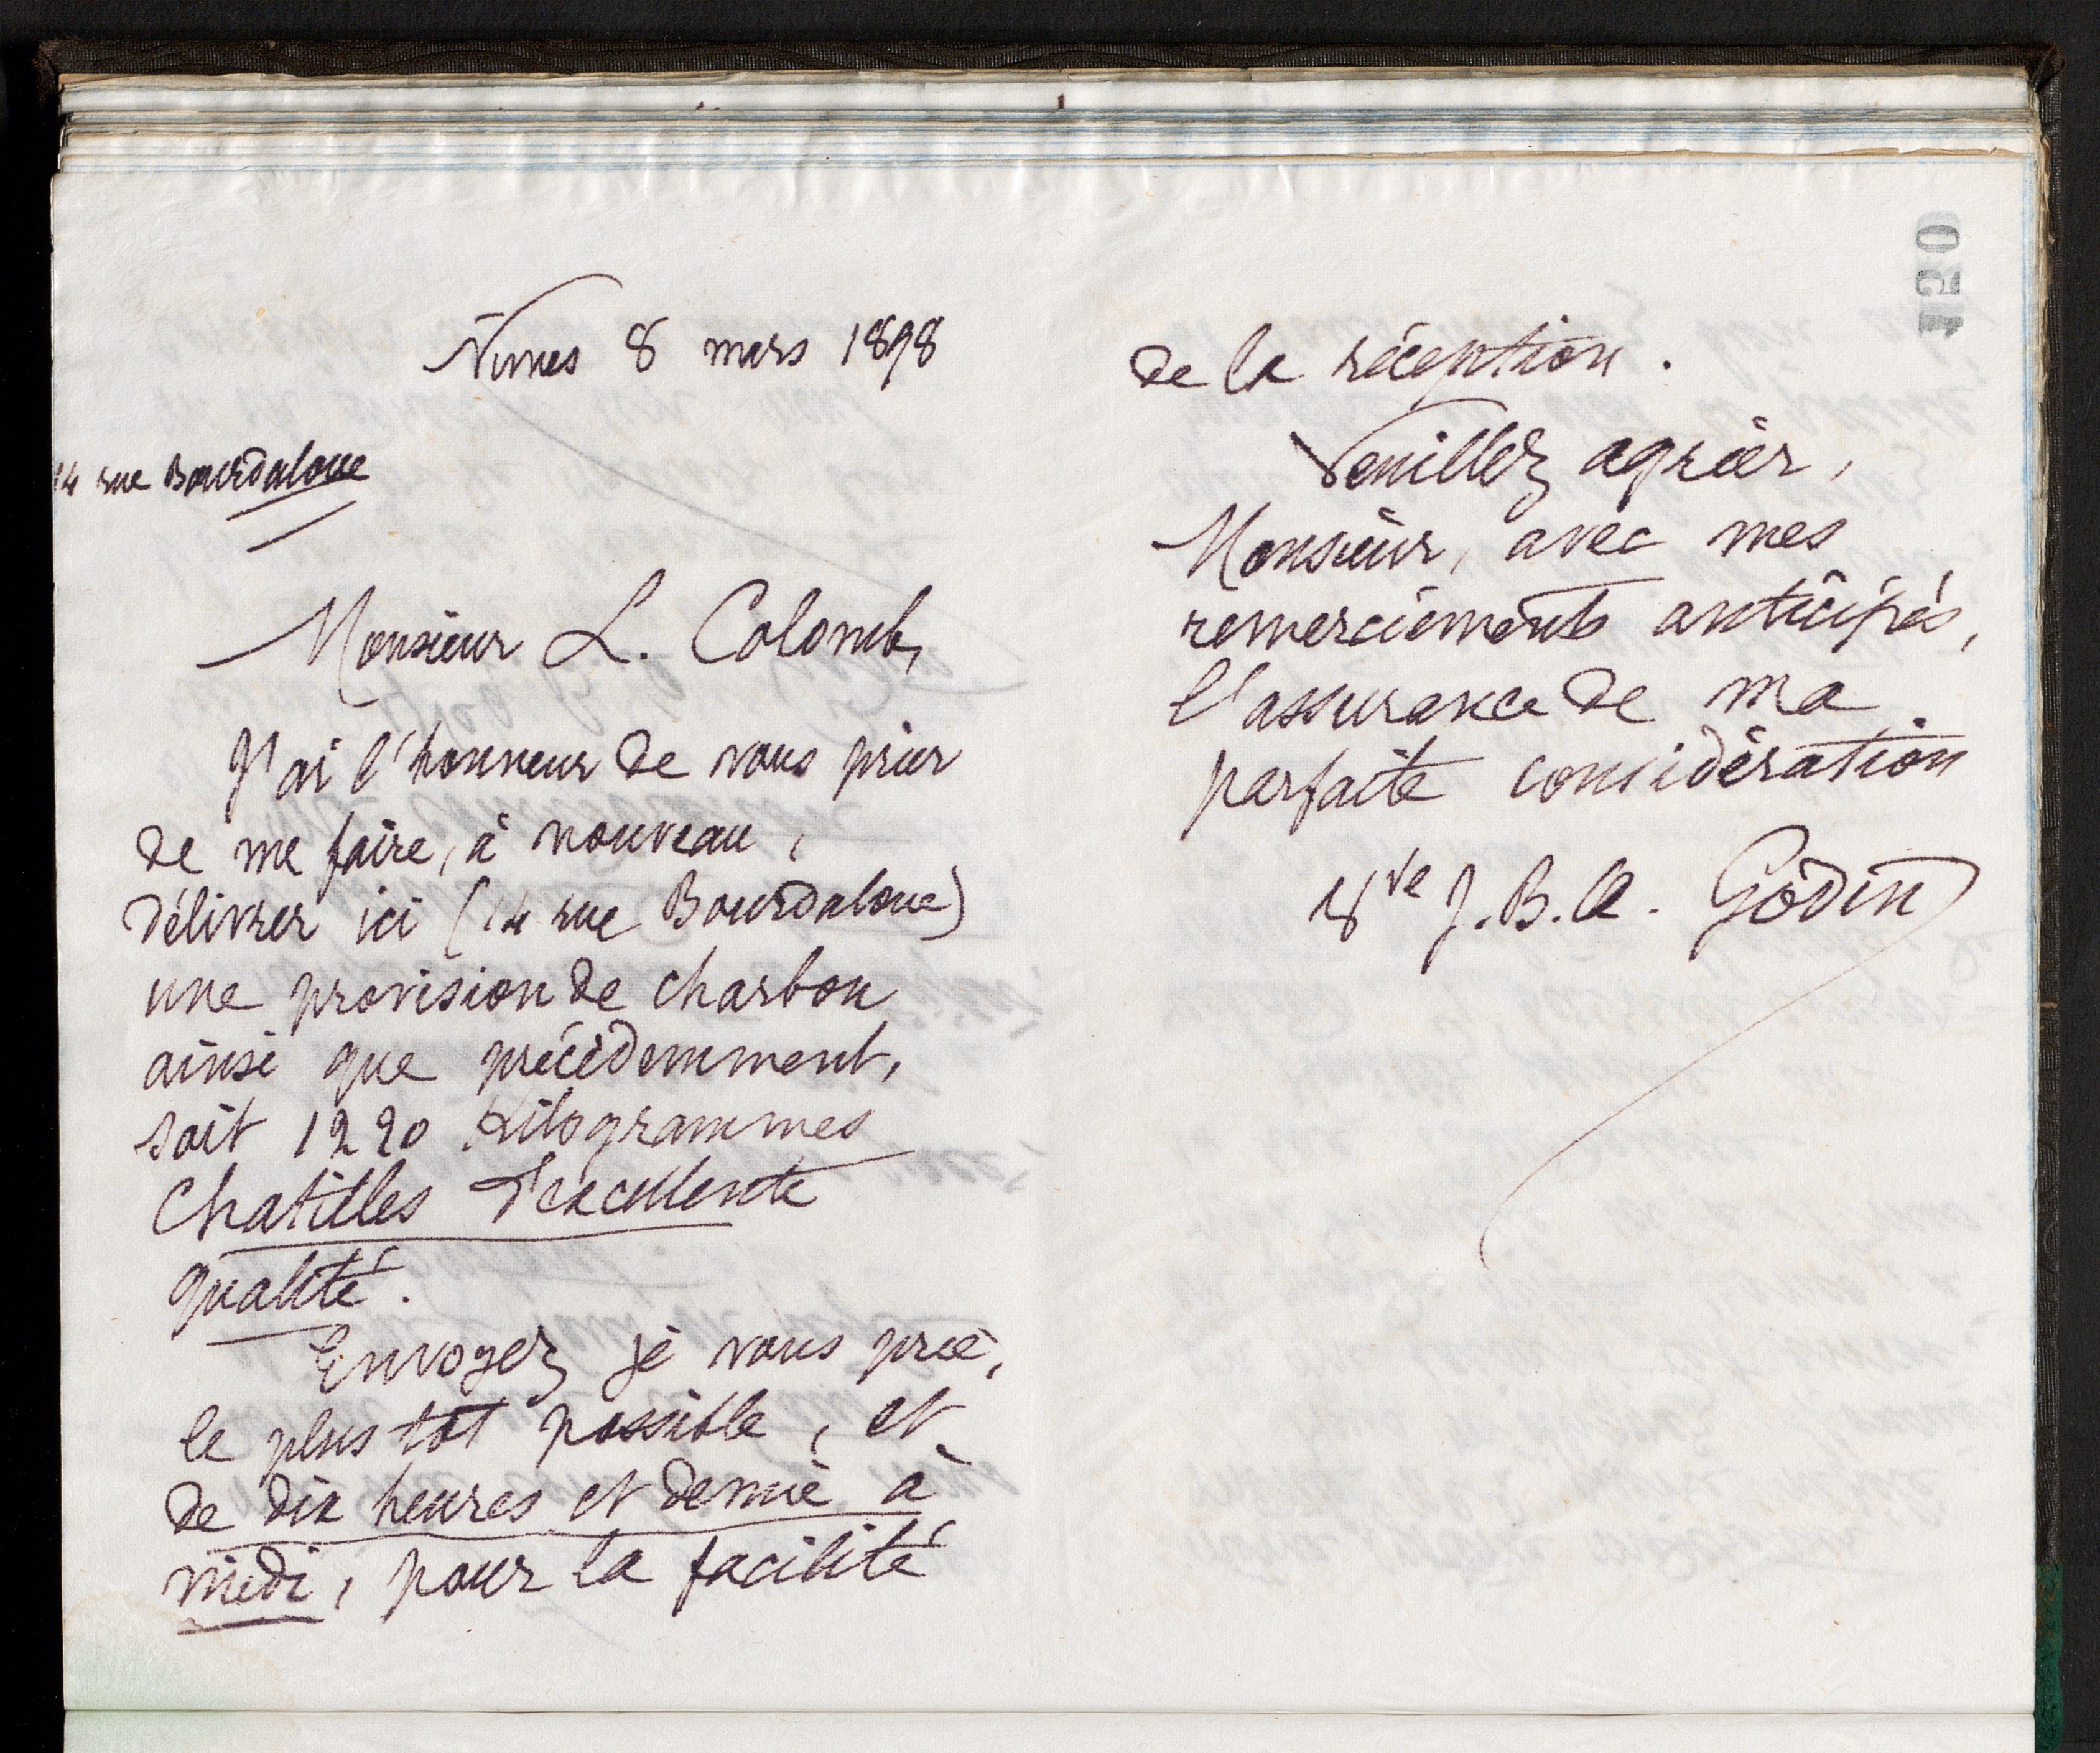 Nimes 8 mars 1898
14 rue Bourdaloue
Monsieur L. Colomb,
J'ai l'honneur de vous prier
de me faire, à nouveau,
délivrer ici (14 rue Bourdaloue)
une provision de charbon
ainsi que précédemment,
soit 1220 Kilogrammes
Chatilles d'excellente
qualité.
Envoyez je vous prie,
le plus tôt possible, et
de dix heures et demie à
midi, pour la facilité
120
de la réception.
Veuillez agréer,
Monsieur, avec mes
remerciements anticipés,
l'assurance de ma
parfaite considération
Vve J. B. A. Godin